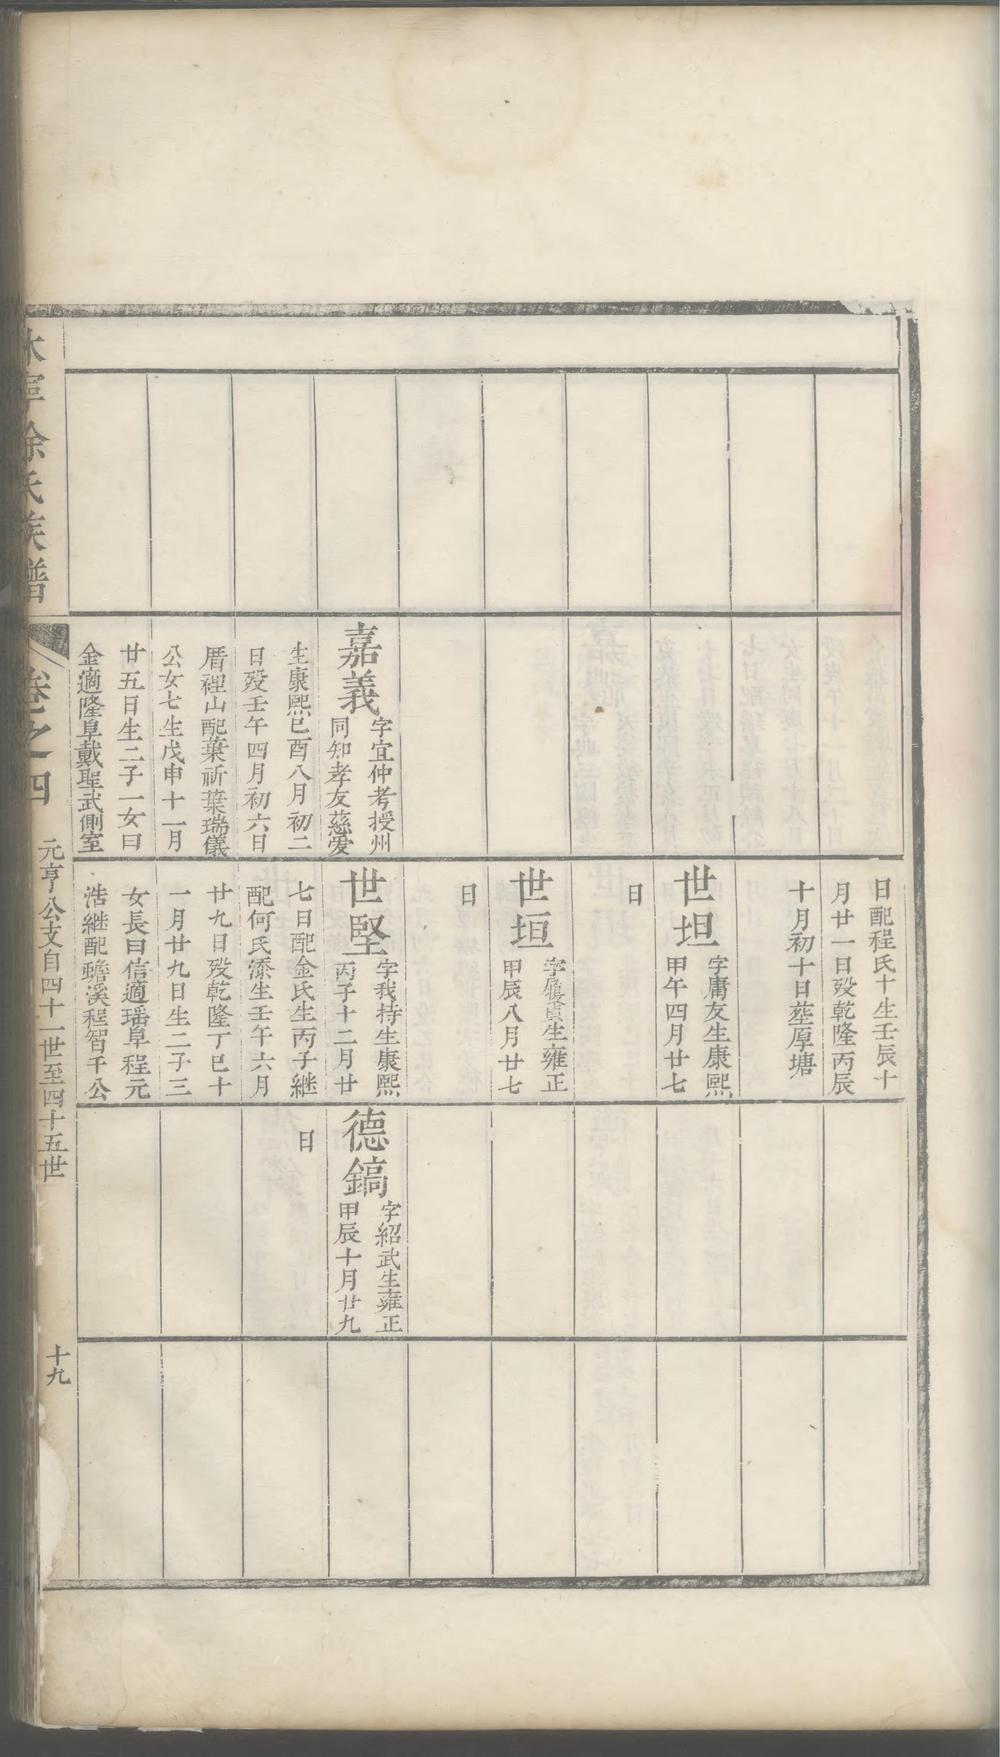 嘉義
字宜仲考授州
同知孝友慈愛
生康熙己酉八月初二
日歿壬午四月初六日
厝裡山配葉祈葉瑞儀
公女七生戊申十一月
廿五日生二子一女曰
金適隆阜戴聖武側室
日配程氏十生壬辰十
月廿一日歿乾隆丙辰
十月初十日塟厚塘
世坦
字庸友生康熙
甲午四月廿七
日
世垣
字履貴生雍正
甲辰八月廿七
日
世堅
字我持生康熙
丙子十二月廿
七日配金氏生丙子継
配何氏漆生壬午六月
廿九日歿乾隆丁巳十
一月廿九日生二子三
女長曰信適璠阜程元
浩継配蟾溪程智千公
德鎬
字紹武生雍正
甲辰十月廿九
日
休寧徐氏族譜
卷之四
元亨公支自四十一世至四十五世
十九